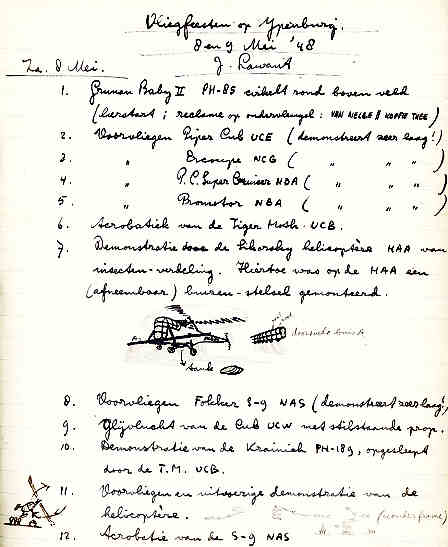 Vliegfeesten op Ypenburg.
8 en 9 Mei '48
Za. 8 Mei.
J. Lawant
1. Gruman Baby II PH-85 cirkelt rond boven veld
(leerstart; reclame op ondervleugel: VAN NELLE'S KOFFIE THEE)
2. Voorvliegen Piper Cub UCE (demonstreert zeer laag!)
3. " Ercoupe NCG ( " " " )
4. " P.C. Super Cruiser NDA ( " " " )
5. " Promotor NBA ( " " " )
6. Acrobatiek van de Tiger Moth UCB.
7. Demonstratie door de Sikorsky helicoptère HAA van
insecten-verdelging. Hiertoe was op de HAA een
(afneembaar) buizen-stelsel gemonteerd.
doorsnede
tank
8. Voorvliegen Fokker S-9 NAS (demonstreert zeer laag!)
9. Glijvlucht van de Cub UCW met stilstaande prop.
10. Demonstratie van de Kranich PH-189, opgesleept
door de T.M. UCB.
11. Voorvliegen en uitvoerige demonstratie van de
helicoptère.
12. Acrobatie van de S-9 NAS